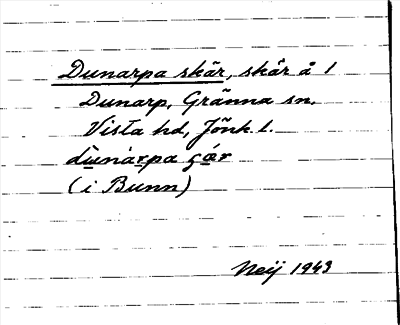 Dunarpa skär, skär å 1
Dunarp, Gränna sn.
Vista hd, Jönk. l.
(i Bunn)
Neij 1943